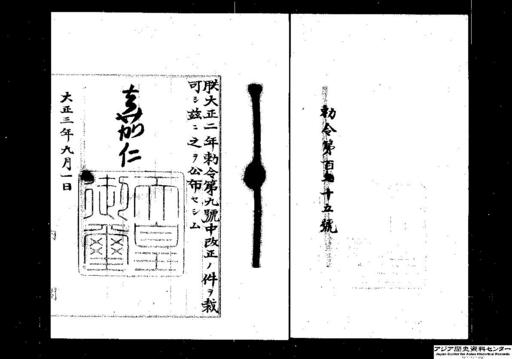 勅令第百十五號
朕大正二年勅令第九號中改正ノ件ヲ裁
可シ茲ニ之ヲ公布セシム
嘉仁
天皇
御璽
大正三年九月一日
アジア歴史資料センター
Japan Center for Asian Historical Records